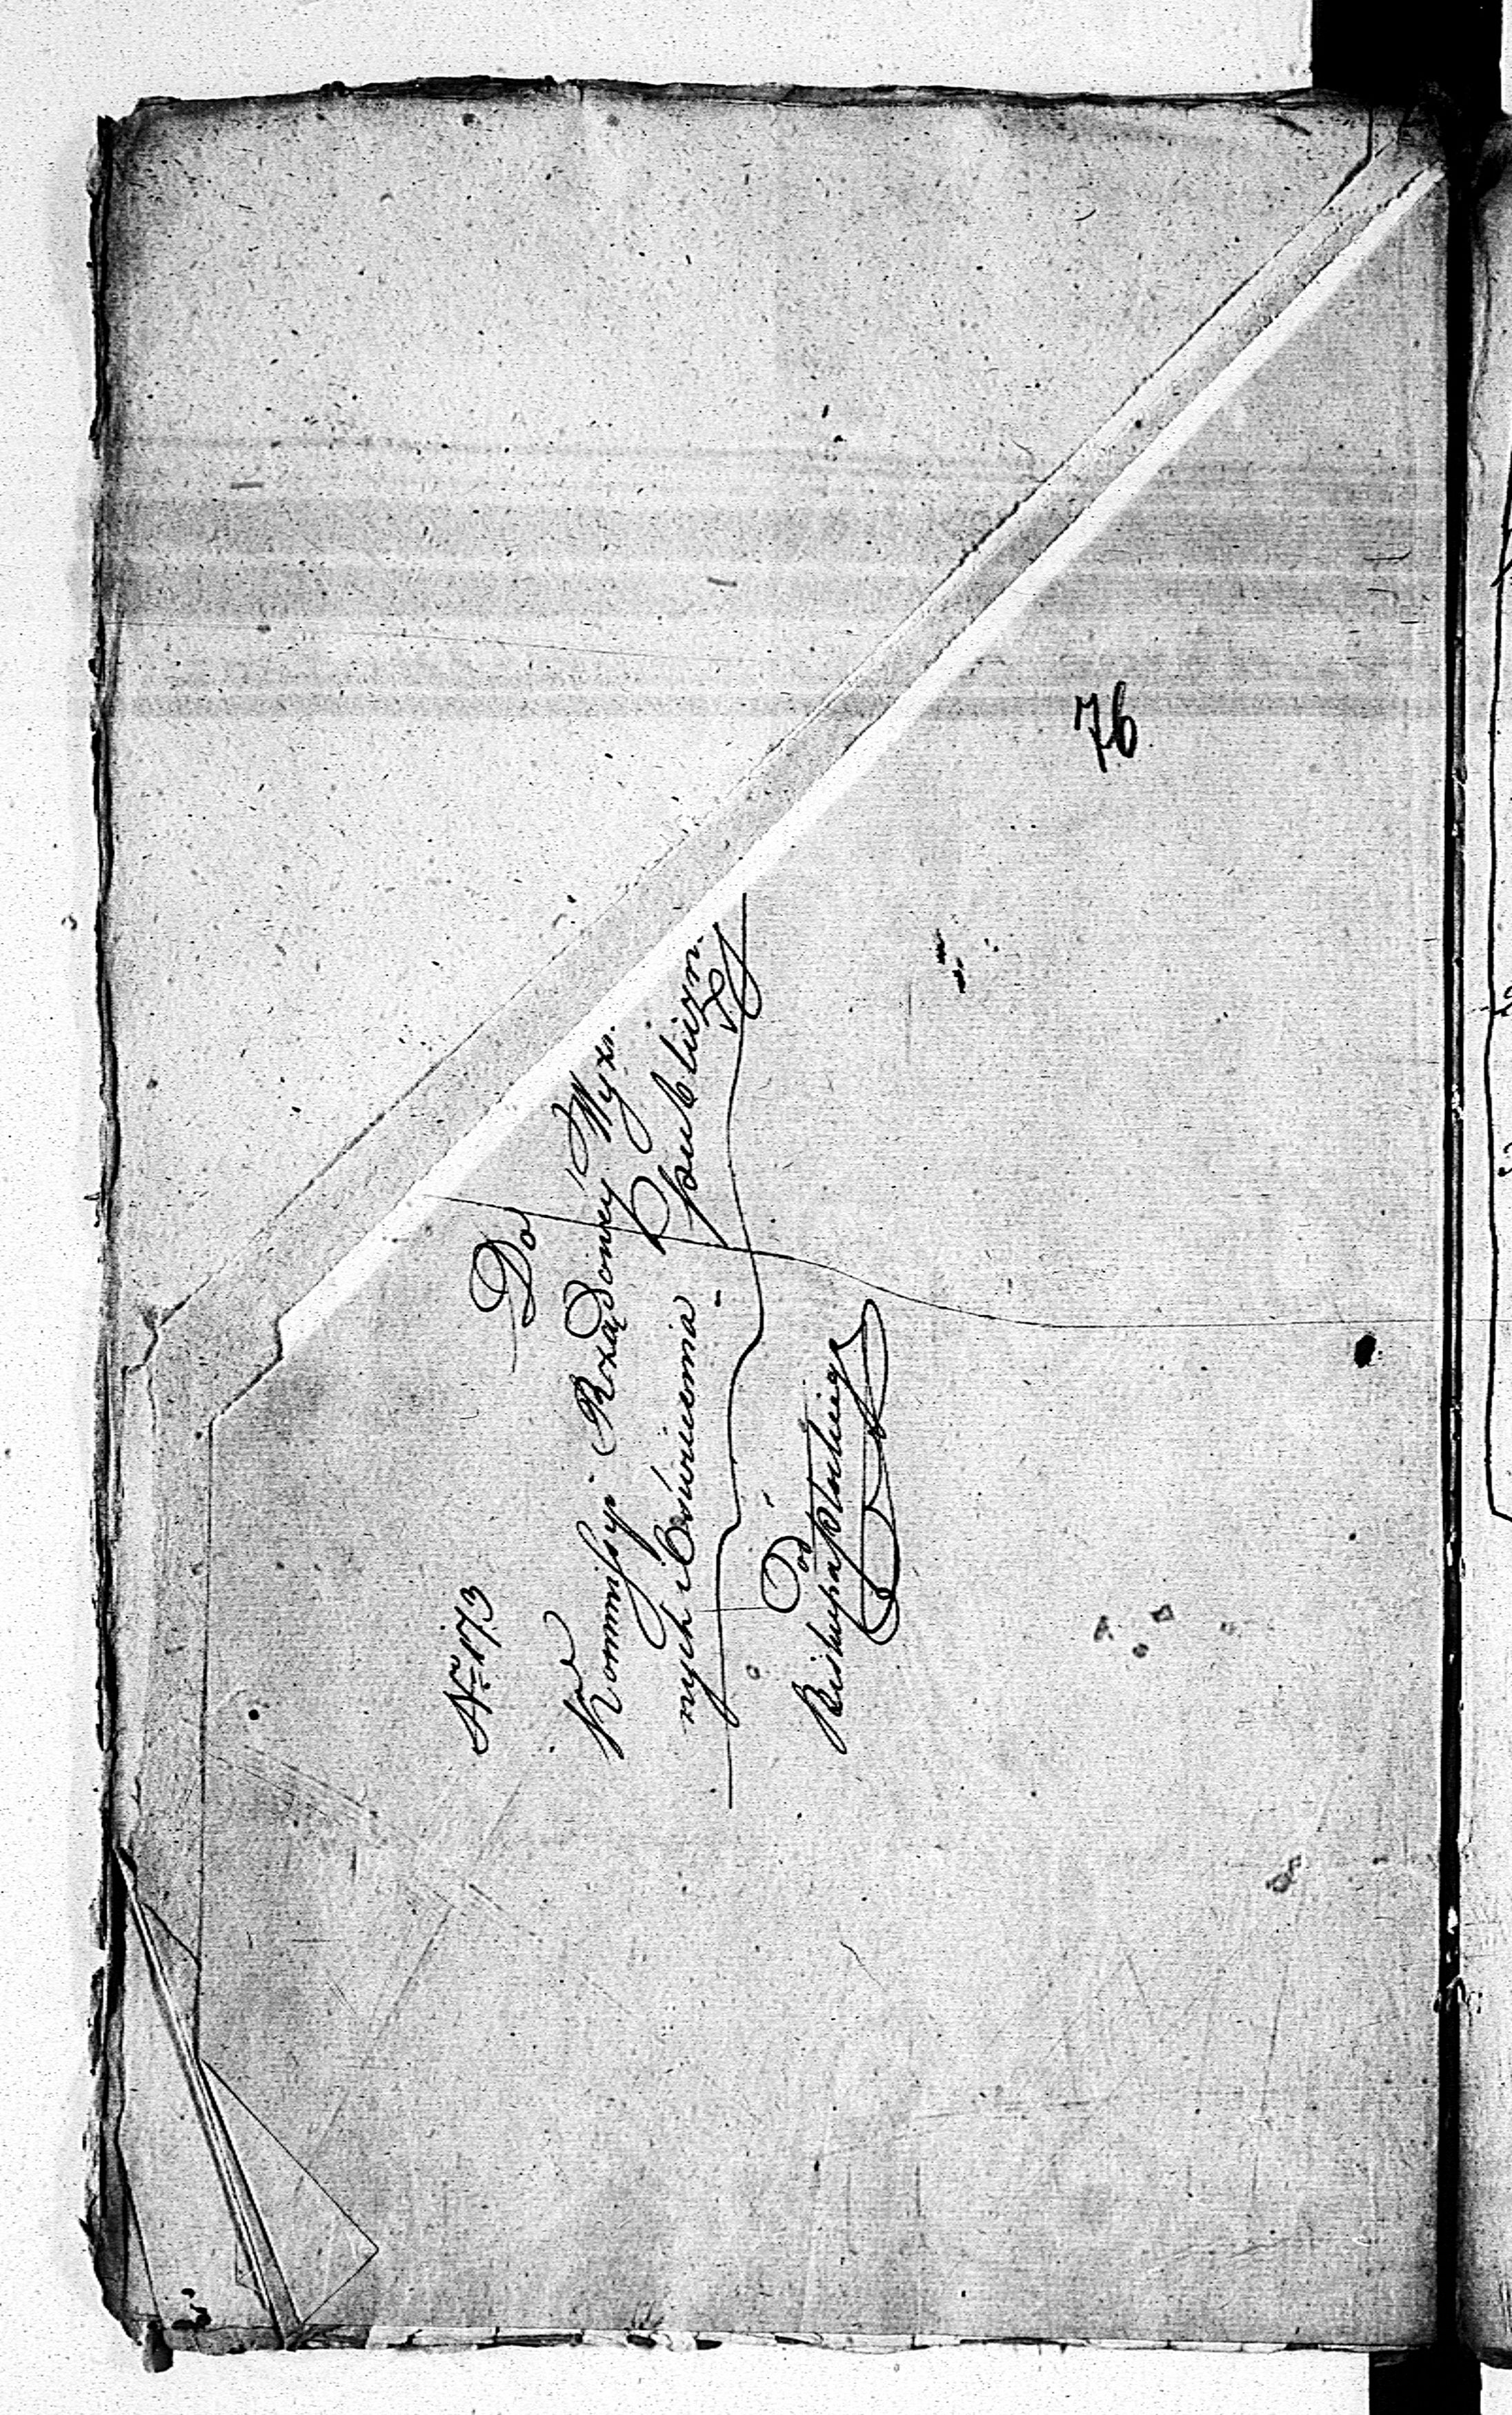 No 173
Do
Kommissyi Rządowey Wyzn.
nych i Oświecenia publiczn.
Od
Biskupa Płockiego
76